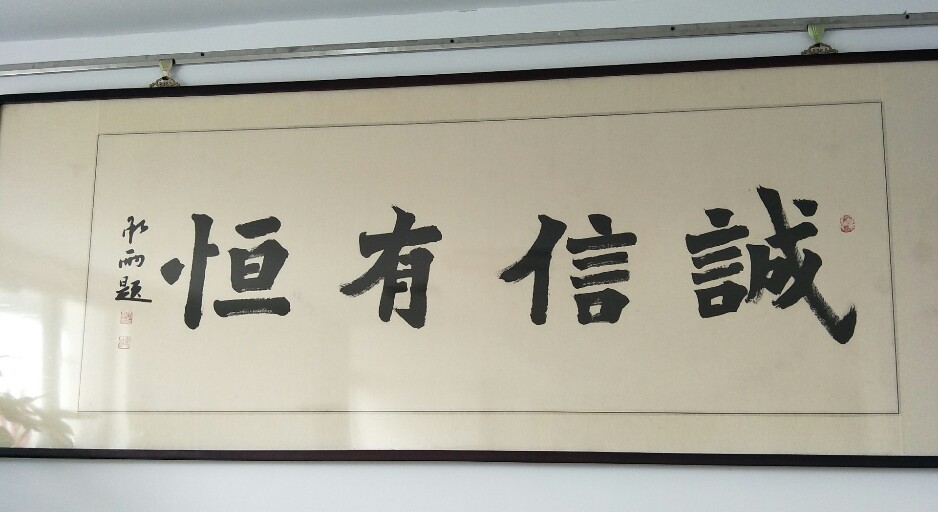 誠信有恒
雨題